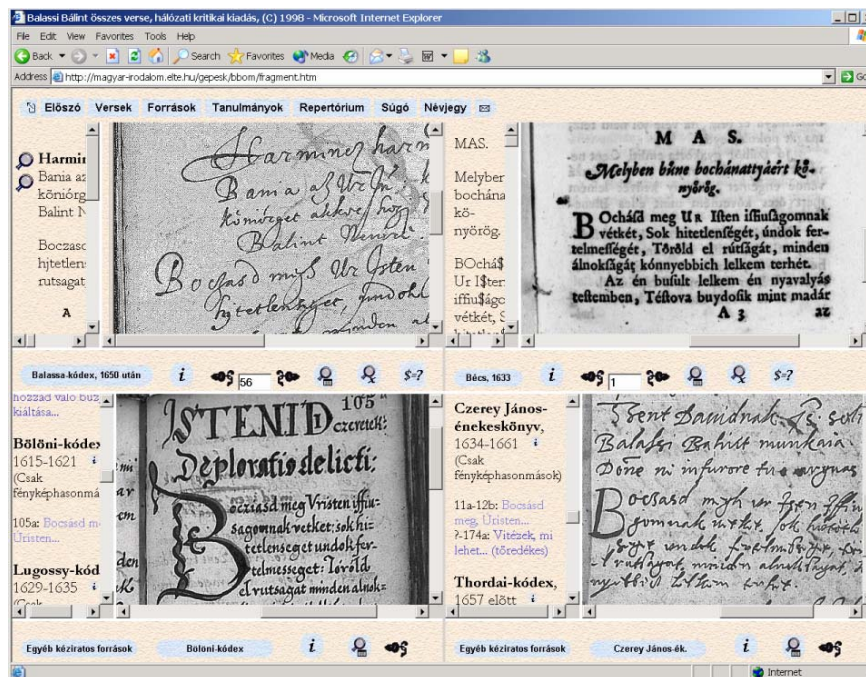 Balassi Bálint összes verse, hálózati kritikai kiadás, (C) 1998 - Microsoft Internet Explorer
File Edit View Favorites Tools Help
Back Search Favorites Media
Address http://magyar-irodalom.elte.hu/gepesk/bbom/fragment.htm Go
Előszó Versek Források Tanulmányok Repertórium Súgó Névjegy
Harmin
Bania az
köniörg
Balint N
Boczasd
hjtetlens
rutsagat
A
Harmincz harm
Bania az Ur
Balint Nemre
Bocsasd megh Ur Isten
MAS.
Melyber
bochána
kö-
nyörög.
BOchá$
Ur I$ter
iffiu$ágo
vétkét, S
M A S.
Melyben bűne bochánattyáért kö-
nyörög.
BOcháſd meg UR Iſten iffiuſagomnak
vétkét, Sok hitetlenſégét, úndok fer-
telmeſſégét, Tőrőld el rútſágát, minden
álnokſágát kónnyebbich lelkem terhét.
Az én buſult lelkem én nyavalyás
teſtemben, Téſtova buydoſik mint madár
A 3 az
Balassa-kódex, 1650 után i 56 $=?
Bécs, 1633 i 1 $=?
hozzád való buz
kiáltása...
Bölöni-kódex
1615-1621 i
(Csak
fényképhasonmá
105a: Bocsásd m
Úristen...
Lugossy-kód
1629-1635 i
(Csak
105
ISTENID
czeretek:
Deploratio delicti:
Bocziasd meg Vristen iffiu=
sagomnak vetket: sok hi=
tetlenseget undok fer=
telmesseget: Töröld
el rutsagat minden alnok=
Czerey János-
énekeskönyv,
1634-1661 i
(Csak
fényképhasonmások)
11a-12b: Bocsásd
meg, Úristen...
?-174a: Vitézek, mi
lehet... (töredékes)
Thordai-kódex,
1657 előtt i
Szent Davidnak
Balassi Balint munkaia
Bocsasd megh ur Isten iffiu
Egyéb kéziratos források Bölöni-kódex i
Egyéb kéziratos források Czerey János-ék. i
Internet